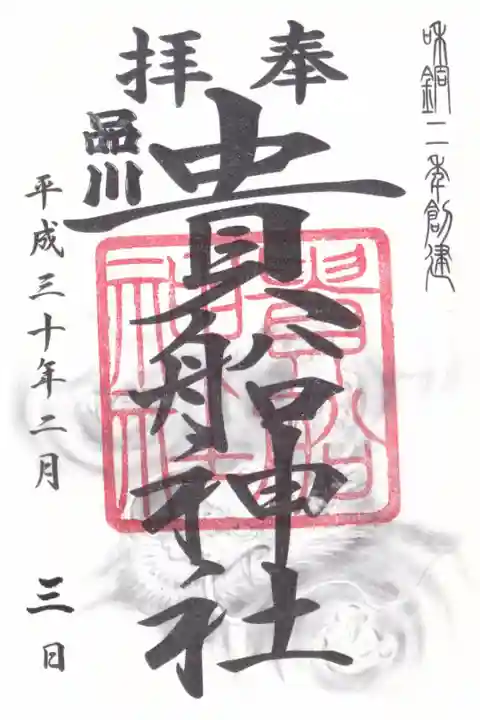 和銅二年創建
奉拝
品川
貴船神社
平成三十年二月三日
貴船神社